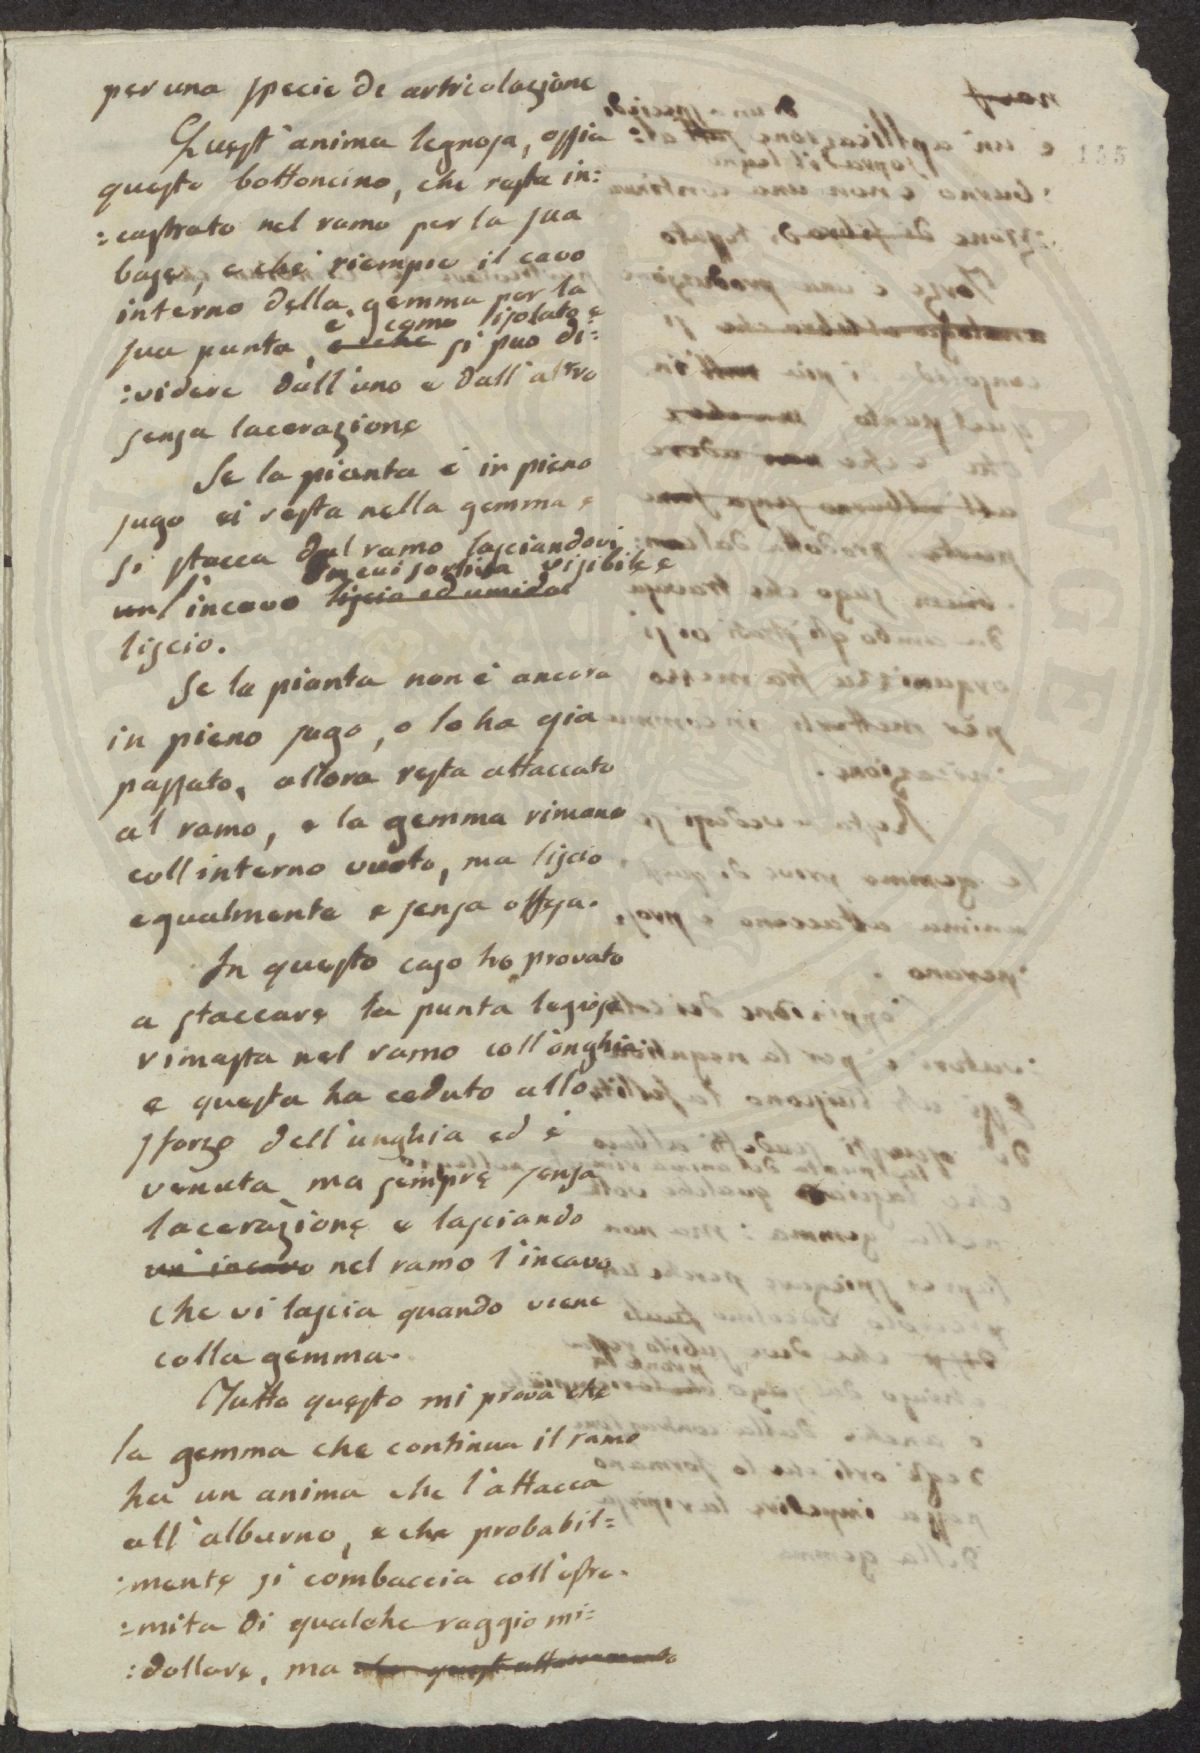 per una specie de articolazione
Quest'anima legnosa, ossia
questo bottoncino, che resta in:
:castrato nel ramo per la sua
base, e che riempie il cavo
interno della gemma per la
è come isolato e
sua punta, e che si puo di:
:videre dall'uno e dall'altro
senza lacerazione
Se la pianta è in pieno
sugo ei resta nella gemma e
si stacca dal ramo lasciandovi
in cui sortita visibile e
un l'incavo liscio ed umido
liscio.
Se la pianta non è ancora
in pieno sugo, o lo ha gia
passato, allora resta attaccato
al ramo, e la gemma rimane
coll'interno vuoto, ma liscio
equalmente e senza offesa.
In questo caso ho provato
a staccare la punta legnosa
rimasta nel ramo coll'onghia
e questa ha ceduto allo
sforzo dell'unghia ed è
venuta, ma sempre senza
lacerazione e lasciando
un'incavo nel ramo l'incavo
che vi lascia quando viene
colla gemma.
Tutto questo mi prova che
la gemma che continua il ramo
ha un anima che l'attacca
all'alburno, e che probabil=
:mente si combaccia coll'estre.
:mita di qualche raggio mi=
:dollare, ma che quest'attaccamento
155